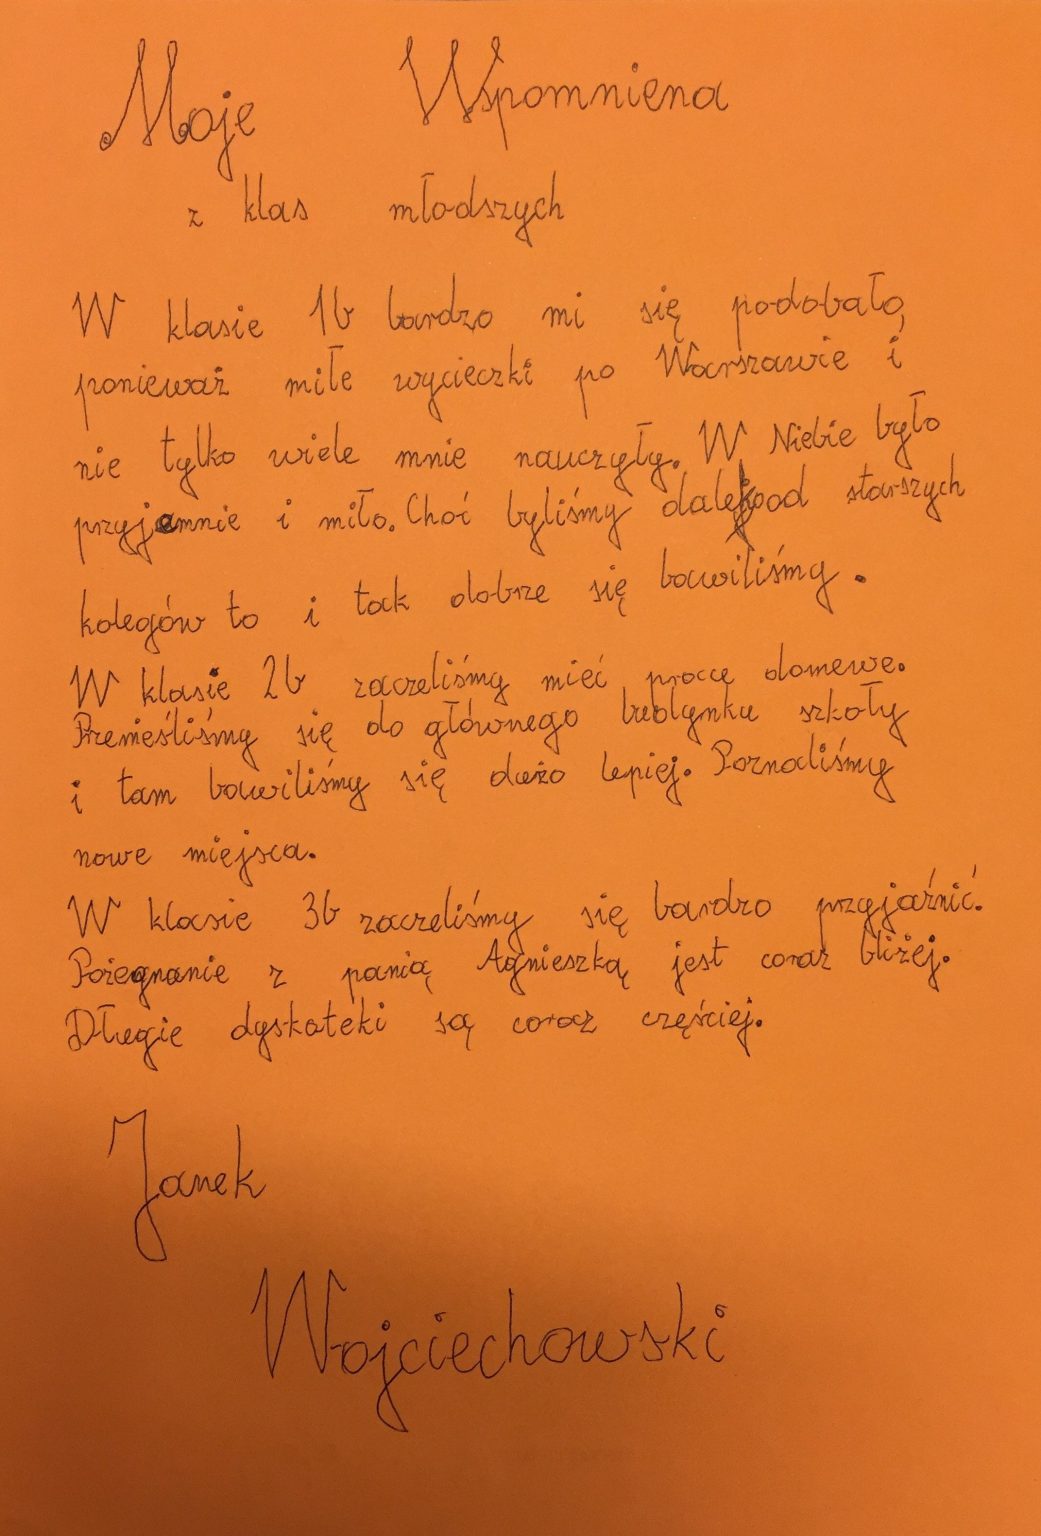 Moje Wspomniena
z klas młodszych
W klasie 1b bardzo mi się podobało,
ponieważ miłe wycieczki po Warszawie i
nie tylko wiele mnie nauczyły. W Niebie było
przyjemnie i miło. Choć byliśmy dalej od starszych
kolegów to i tak dobrze się bawiliśmy.
W klasie 2b zaczeliśmy mieć pracę domewe.
Przemieśliśmy się do głównego budynku szkoły
i tam bawiliśmy się dużo lepiej. Poznaliśmy
nowe miejsca.
W klasie 3b zaczeliśmy się bardzo przyjaźnić.
Pożegnanie z panią Agnieszką jest coraz bliżej.
Długie dyskoteki są coraz częściej.
Janek
Wojciechowski